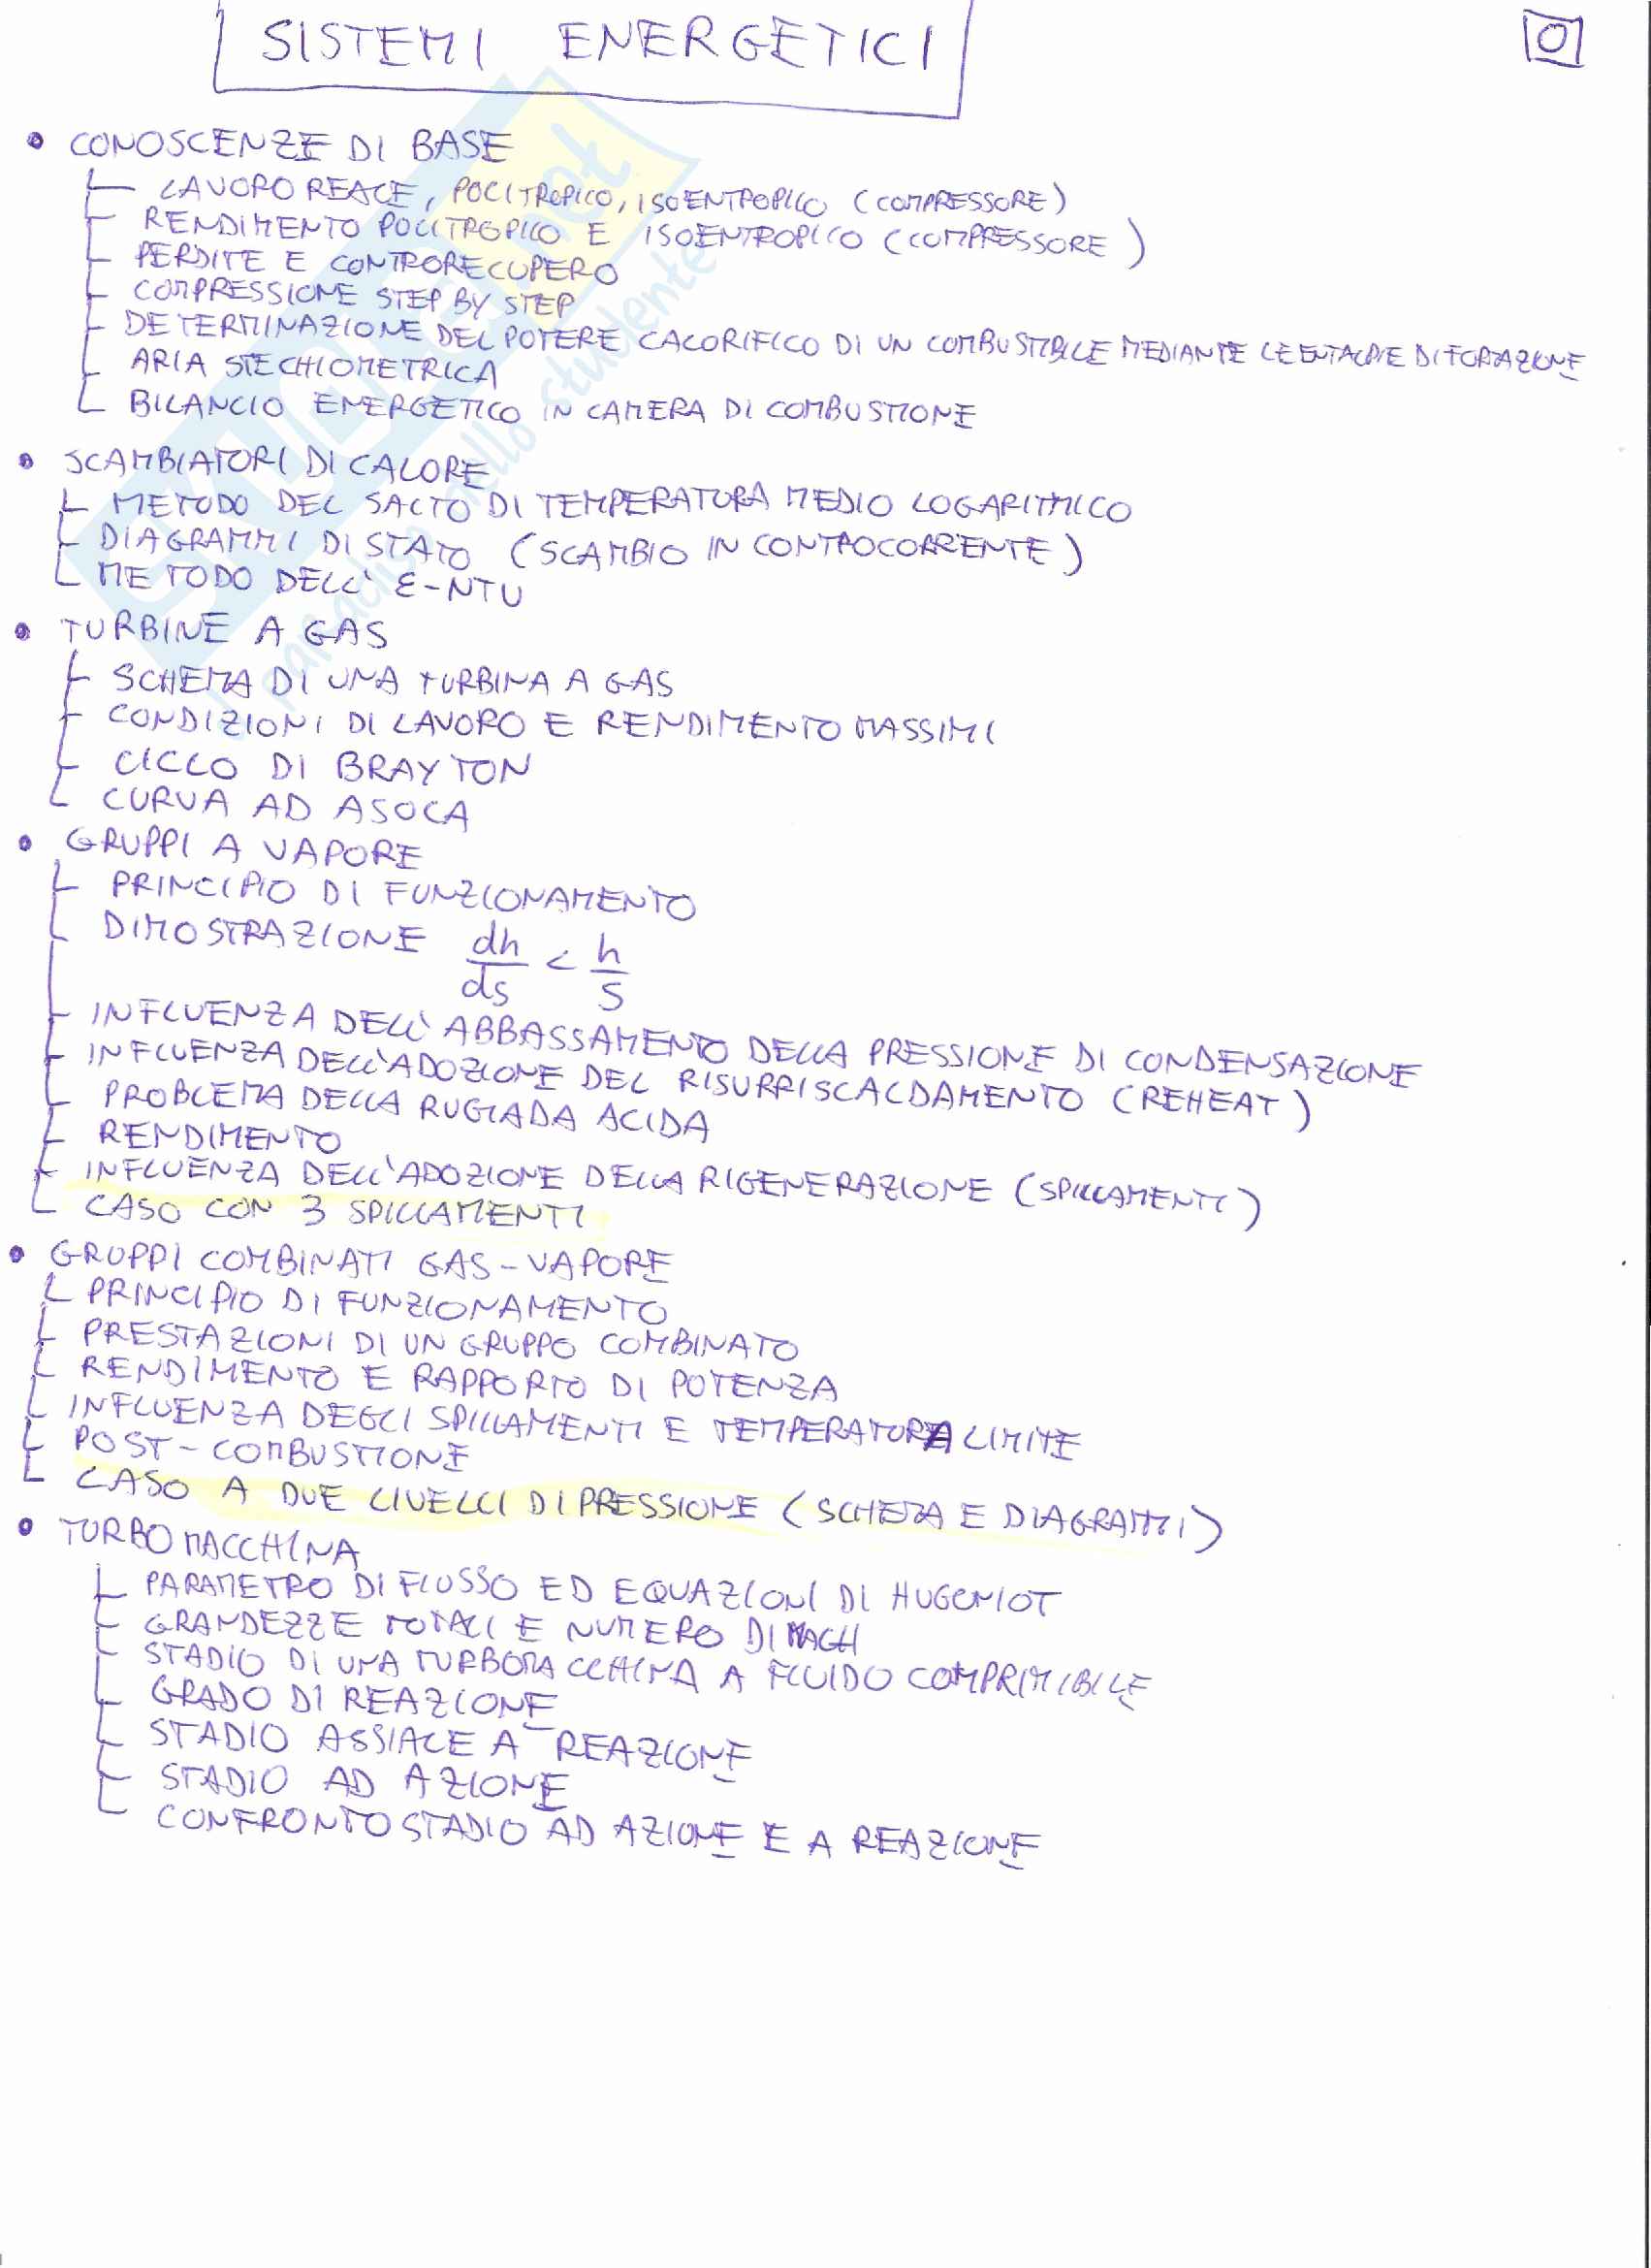 SISTEMI ENERGETICI
0
• CONOSCENZE DI BASE
LAVORO REALE, POLITROPICO, ISOENTROPICO (COMPRESSORE)
RENDIMENTO POLITROPICO E ISOENTROPICO (COMPRESSORE)
PERDITE E CONTRORECUPERO
COMPRESSIONE STEP BY STEP
DETERMINAZIONE DEL POTERE CALORIFICO DI UN COMBUSTIBILE MEDIANTE LE ENTALPIE DI FORAZIONE
ARIA STECHIOMETRICA
BILANCIO ENERGETICO IN CAMERA DI COMBUSTIONE
• SCAMBIATORI DI CALORE
METODO DEL SALTO DI TEMPERATURA MEDIO LOGARITMICO
DIAGRAMMI DI STATO (SCAMBIO IN CONTROCORRENTE)
METODO DELL' ε-NTU
• TURBINE A GAS
SCHEMA DI UNA TURBINA A GAS
CONDIZIONI DI LAVORO E RENDIMENTO MASSIMI
CICLO DI BRAYTON
CURVA AD ASOLA
• GRUPPI A VAPORE
PRINCIPIO DI FUNZIONAMENTO
DIMOSTRAZIONE dh/ds < h/s
INFLUENZA DELL'ABBASSAMENTO DELLA PRESSIONE DI CONDENSAZIONE
INFLUENZA DELL'ADOZIONE DEL RISURRISCALDAMENTO (REHEAT)
PROBLEMA DELLA RUGIADA ACIDA
RENDIMENTO
INFLUENZA DELL'ADOZIONE DELLA RIGENERAZIONE (SPILLAMENTI)
CASO CON 3 SPILLAMENTI
• GRUPPI COMBINATI GAS-VAPORE
PRINCIPIO DI FUNZIONAMENTO
PRESTAZIONI DI UN GRUPPO COMBINATO
RENDIMENTO E RAPPORTO DI POTENZA
INFLUENZA DEGLI SPILLAMENTI E TEMPERATURA LIMITE
POST-COMBUSTIONE
CASO A DUE LIVELLI DI PRESSIONE (SCHEMA E DIAGRAMMI)
• TURBOMACCHINA
PARAMETRO DI FLUSSO ED EQUAZIONI DI HUGONIOT
GRANDEZZE TOTALI E NUMERO DI MACH
STADIO DI UNA TURBOMACCHINA A FLUIDO COMPRIMIBILE
GRADO DI REAZIONE
STADIO ASSIALE A REAZIONE
STADIO AD AZIONE
CONFRONTO STADIO AD AZIONE E A REAZIONE